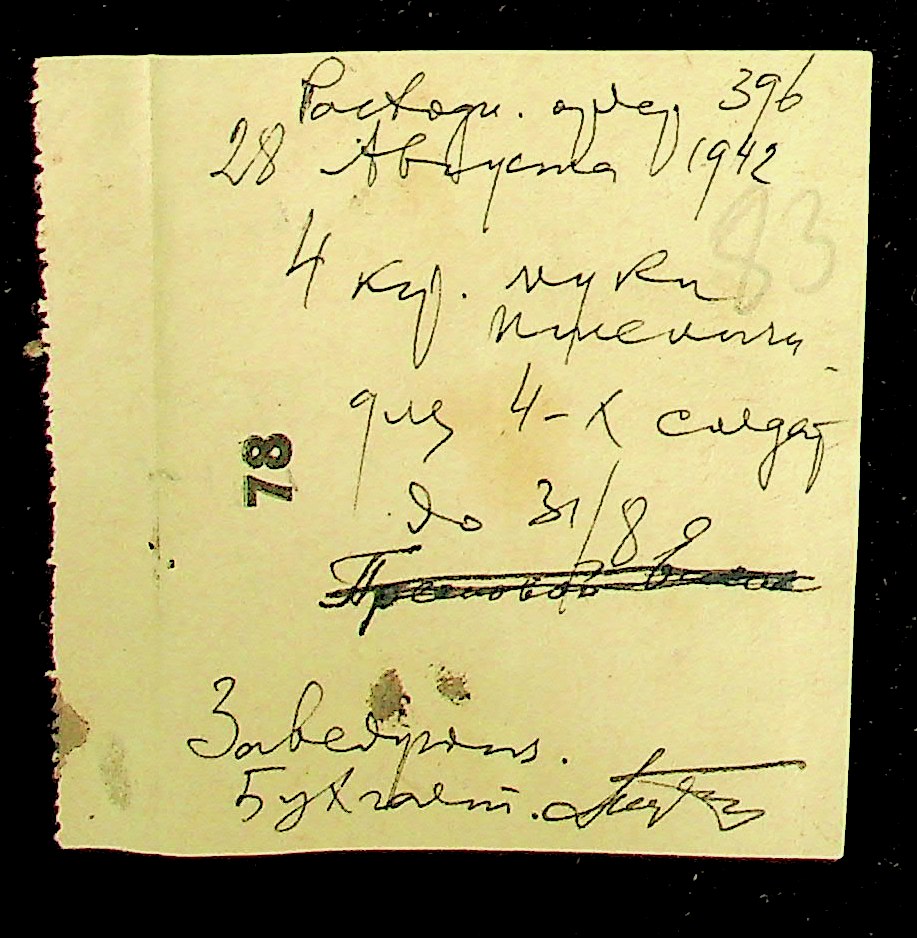 Расходн. ордер 396
28 Августа 1942
83
4 кгр. муки
пшеничн.
для 4-х солдат
78
до 31/8
Заведующ.
Бухгалт.